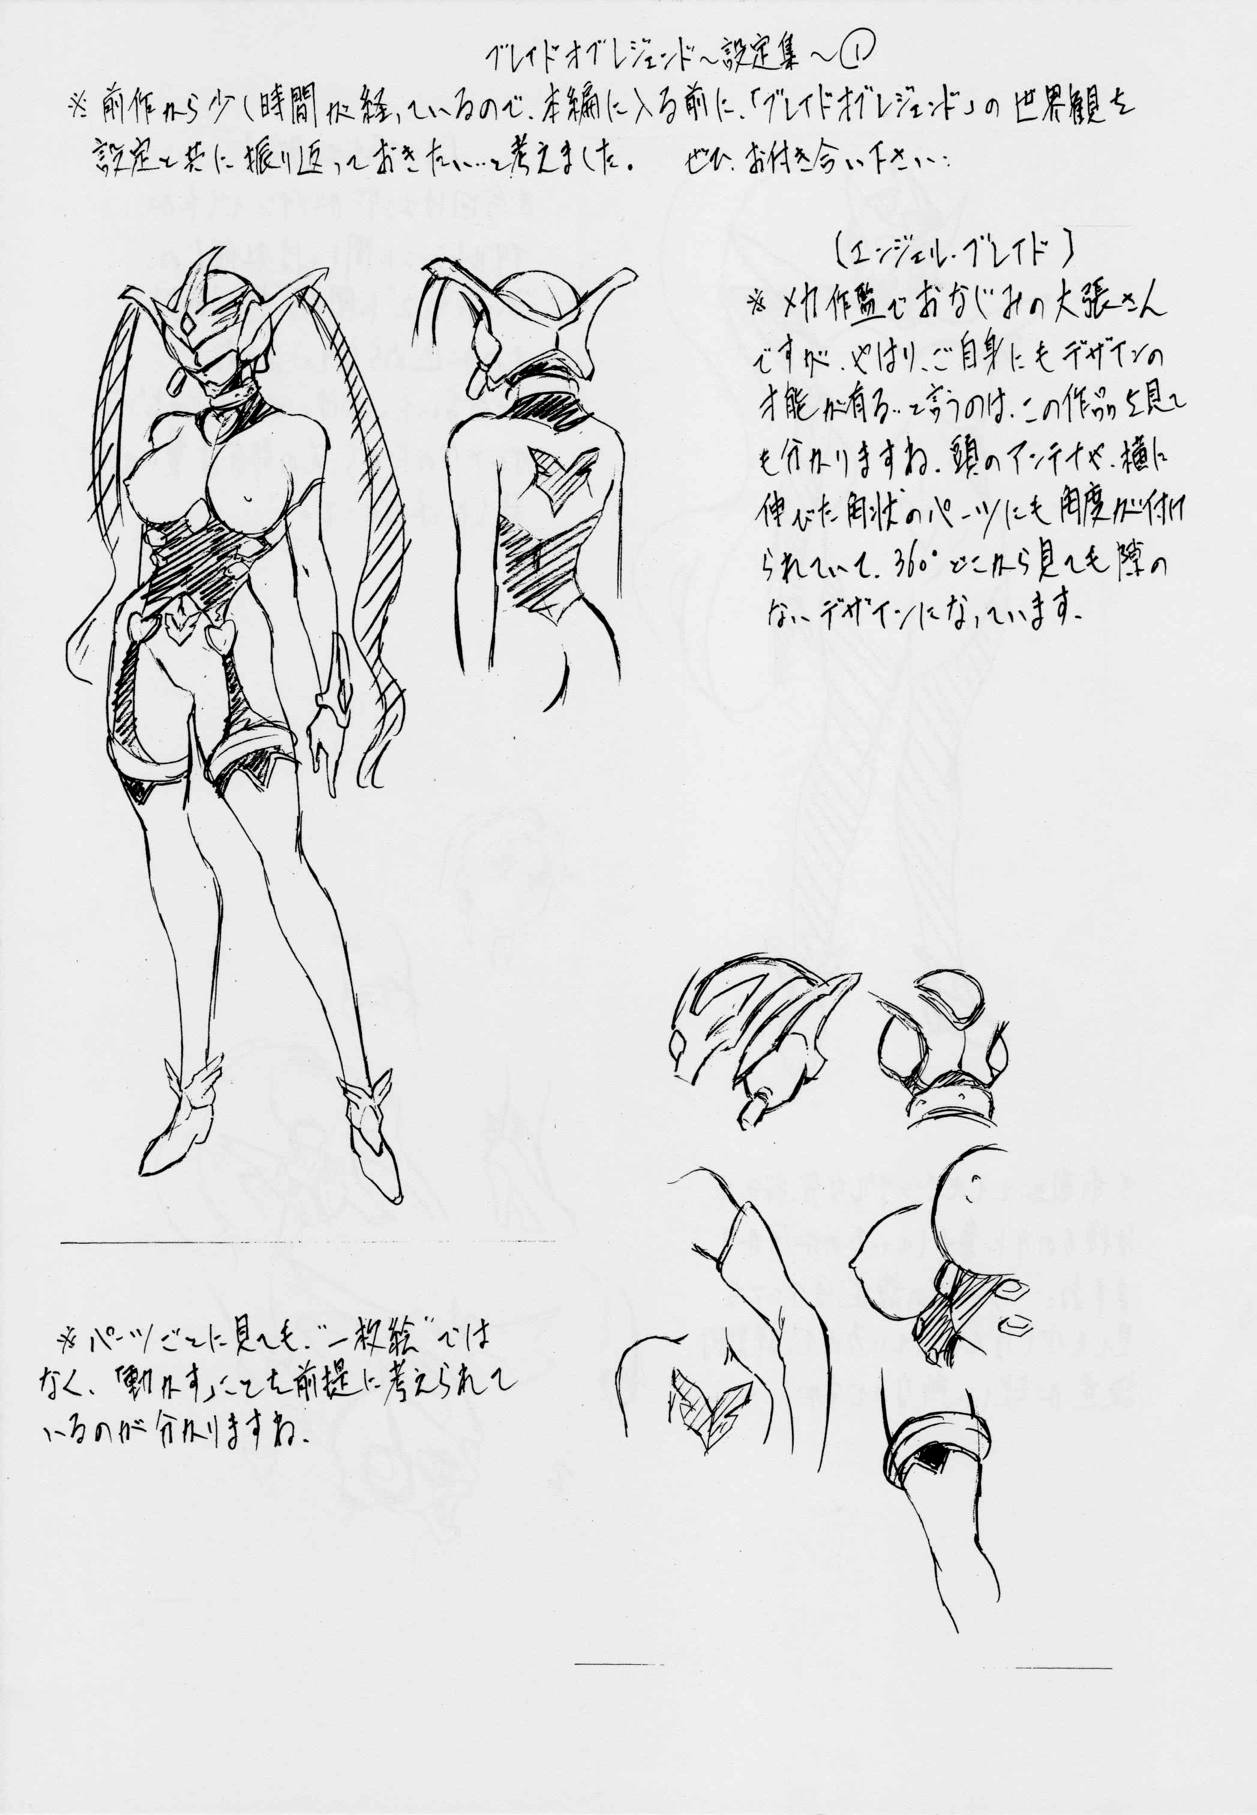 ブレイドオブレジェンド～設定集～①
※前作から少し時間が経っているので、本編に入る前に、「ブレイドオブレジェンド」の世界観を
設定と共に振り返っておきたい…と考えました。 ぜひ、お付き合い下さい…
(エンジェル・ブレイド)
※メカ作監でおなじみの大張さん
ですが、やはり、ご自身にもデザインの
才能が有る…と言うのは、この作品を見て
も分かりますね。頭のアンテナや、横に
伸びた角状のパーツにも角度が付け
られていて、360°どこから見ても隙の
ないデザインになっています。
※パーツごとに見ても、"一枚絵"では
なく、「動かす」ことを前提に考えられて
いるのが分かりますね。